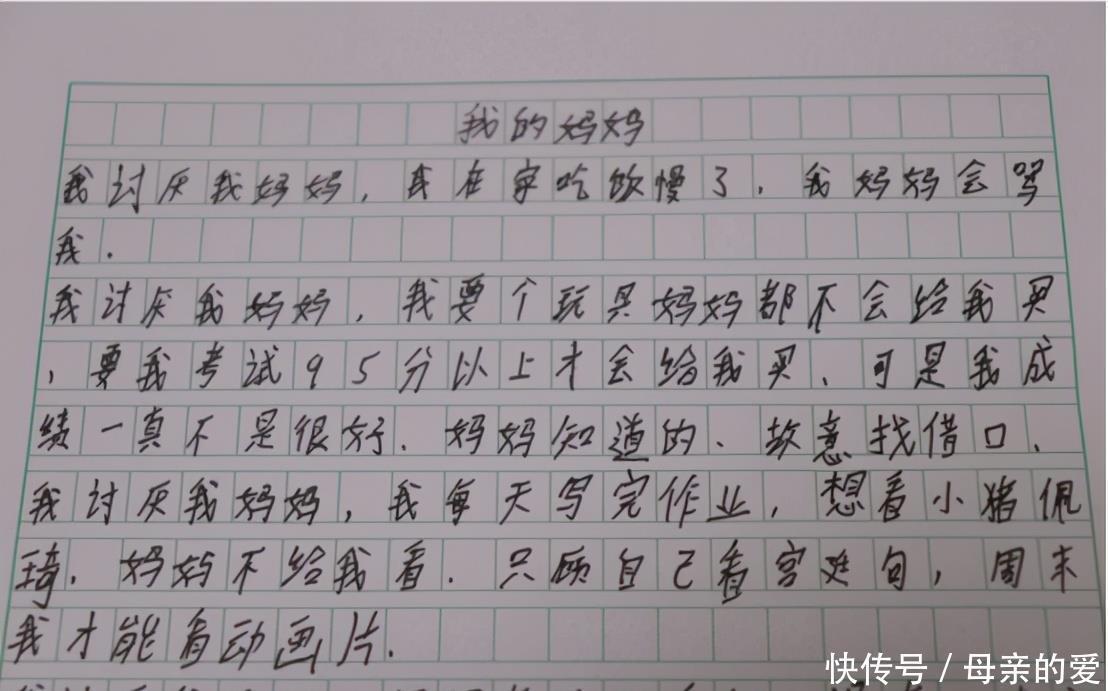 我的妈妈
我讨厌我妈妈，我在家吃饭慢了，我妈妈会骂
我.
我讨厌我妈妈，我要个玩具妈妈都不会给我买
，要我考试95分以上才会给我买、可是我成
绩一真不是很好、妈妈知道的、故意找借口、
我讨厌我妈妈，我每天写完作业，想看小猪佩
琦、妈妈不给我看.只顾自己看宫廷句，周末
我才能看动画片.
快传号/母亲的爱